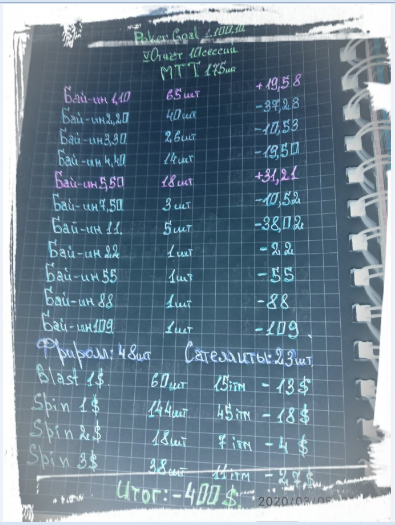 Poker Goal :100БИ
Отчет 10сессии
МТТ 175шт
Бай-ин 1,10 65шт +19,58
Бай-ин 2,20 40шт -37,28
Бай-ин 3,30 26шт -10,53
Бай-ин 4,40 14шт -19,50
Бай-ин 5,50 18шт +31,21
Бай-ин 7,50 3шт -10,52
Бай-ин 11 5шт -38,02
Бай-ин 22 1шт -22
Бай-ин 55 1шт -55
Бай-ин 88 1шт -88
Бай-ин 109 1шт -109.
Фриролл: 48шт Сателлиты: 23шт.
Blast 1$ 60шт 15itm -13$
Spin 1$ 144шт 45itm -18$
Spin 2$ 18шт 7itm -4$
Spin 3$ 38шт 11itm -27$
Итог: -400$
2020/03/05